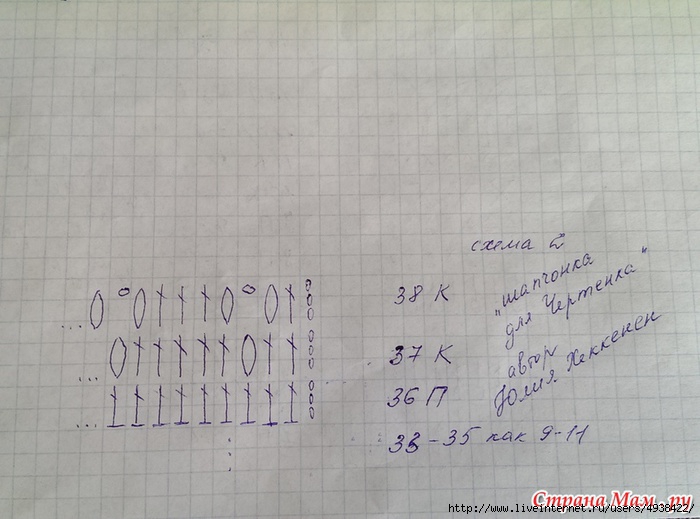 схема 2
"шапчонка
для Чертенка"
автор
Юлия Хеккенен
38 К
37 К
36 П
33-35 как 9-11
Страна Мам.ру
http://www.liveinternet.ru/users/4938422/